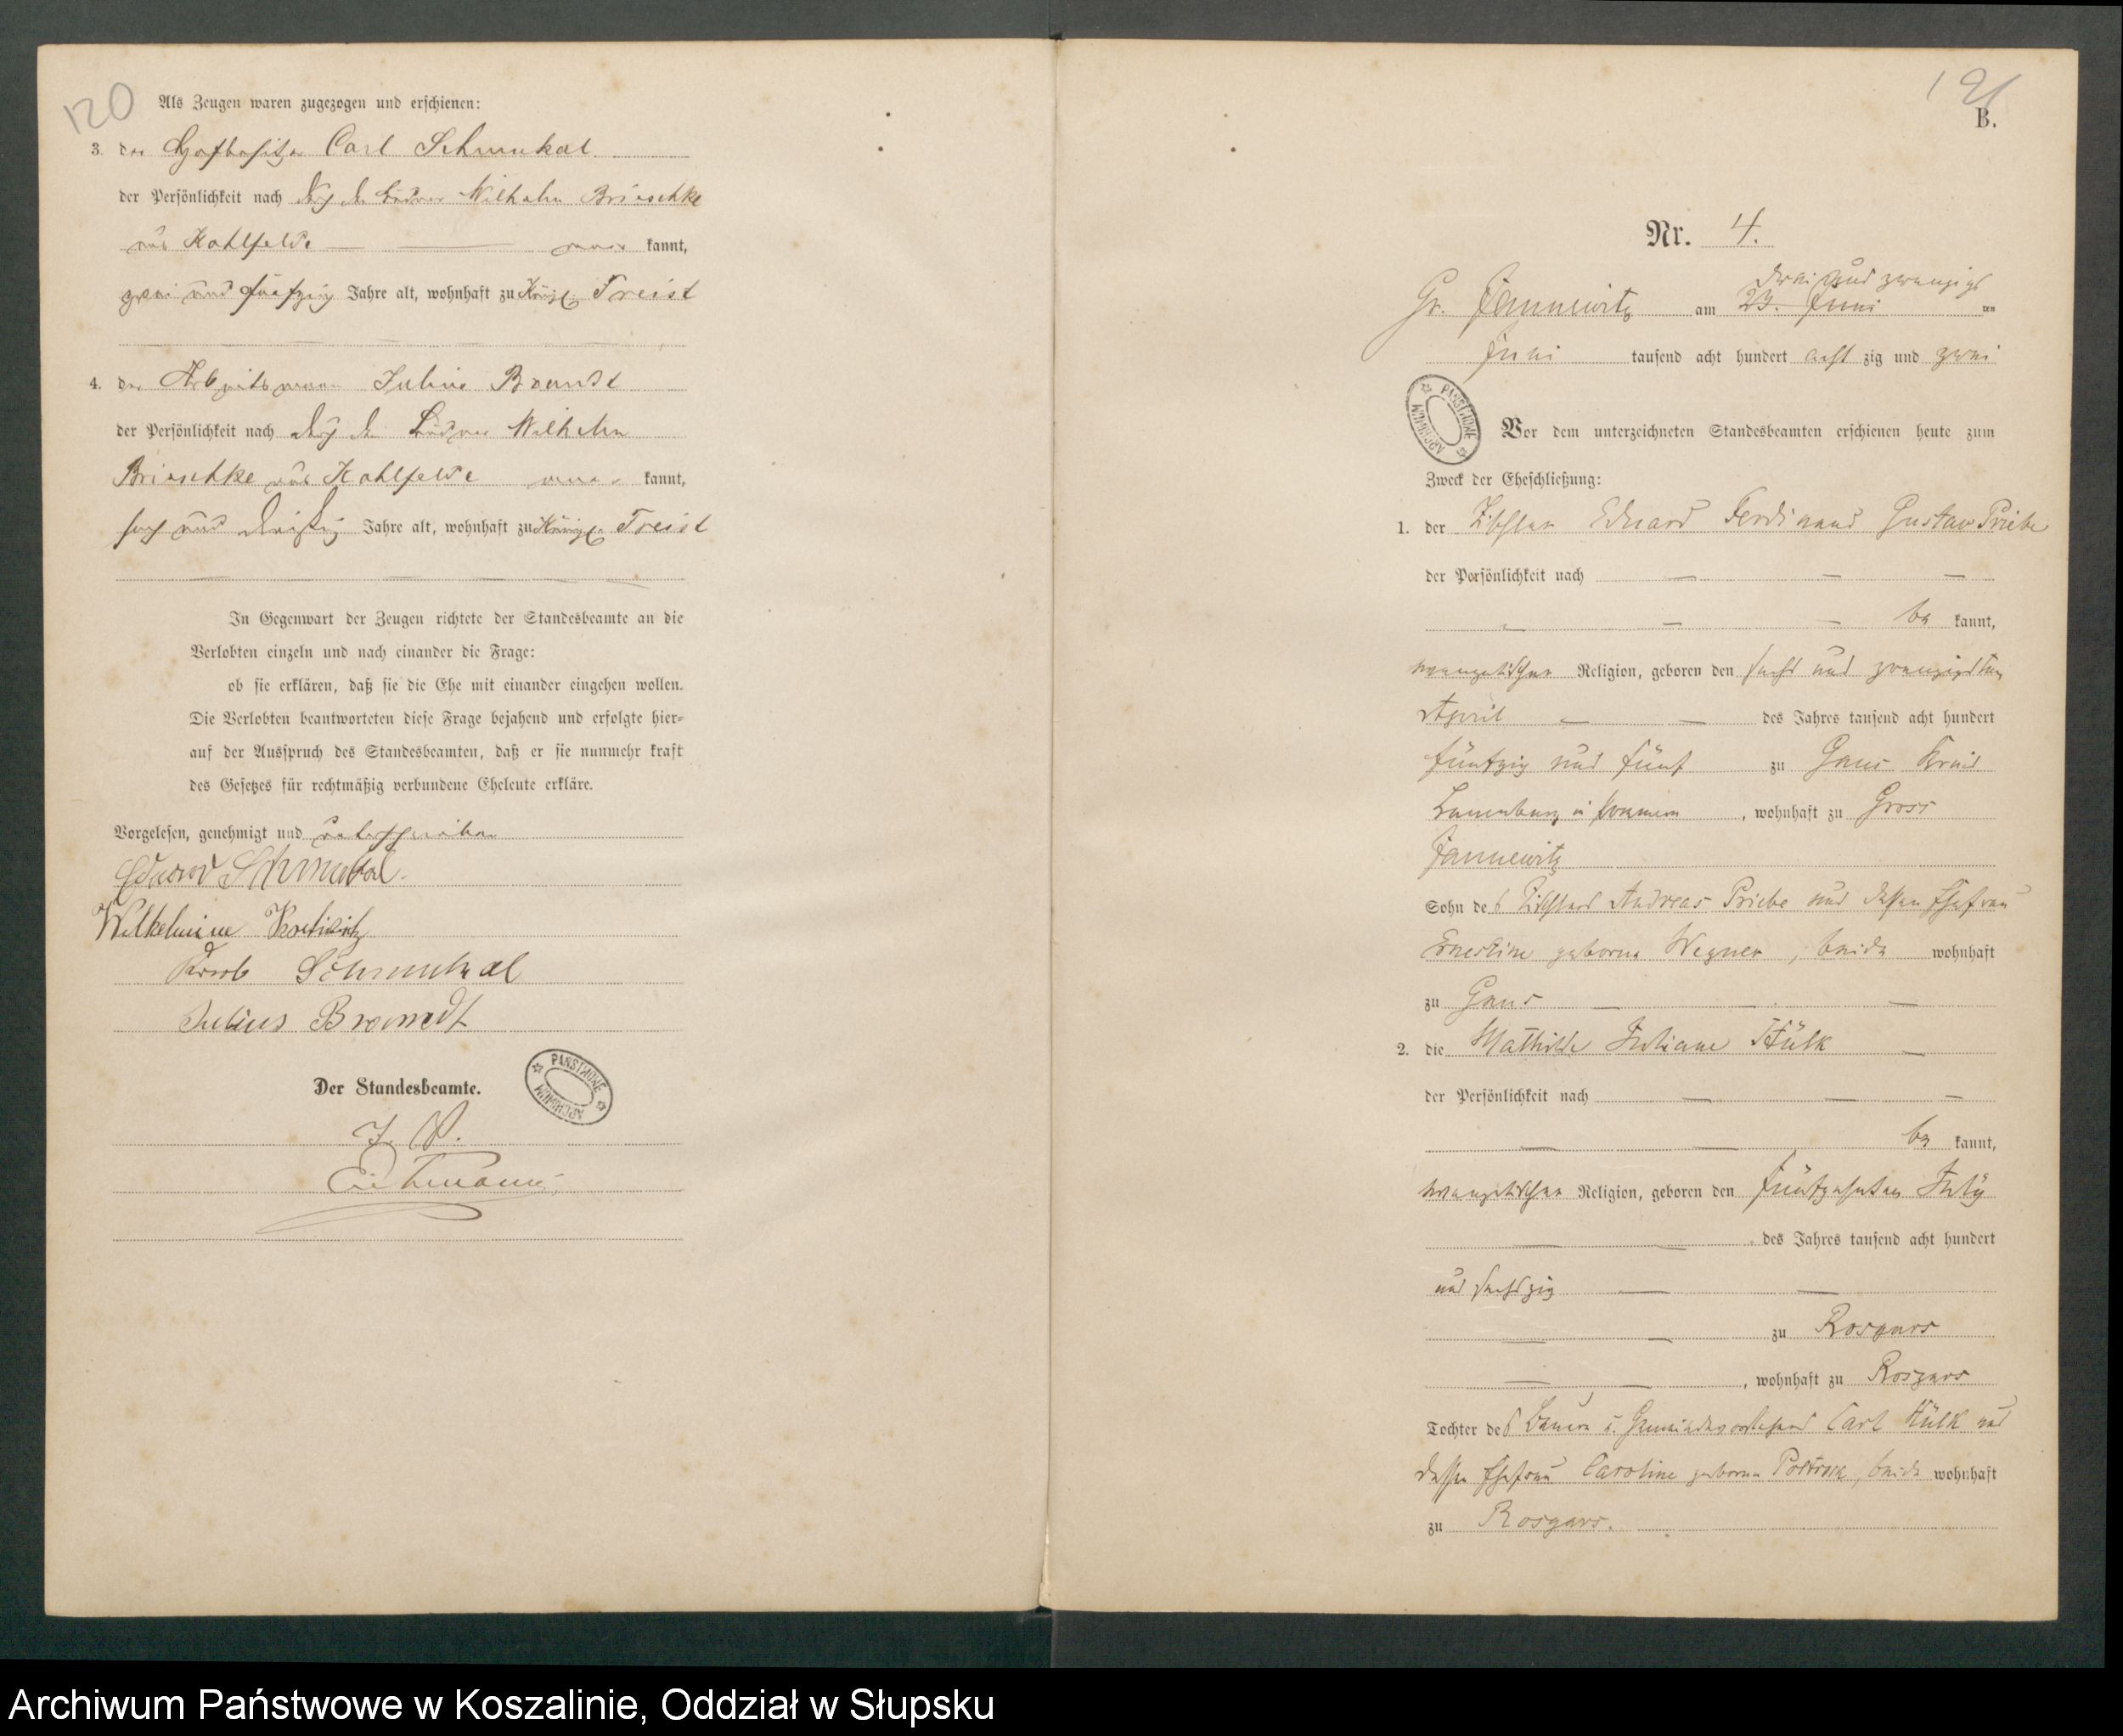 120
Als Zeugen waren zugezogen und erschienen:
3. der Hofbesitzer Carl Schmukal
der Persönlichkeit nach durch den Wilhelm Brieschke
aus Kohlfelde kannt,
zwei und fünfzig Jahre alt, wohnhaft zu Königl. Freist
4. der Arbeitsmann Julius Brandt
der Persönlichkeit nach durch den Wilhelm
Brieschke aus Kohlfelde kannt,
sechs und dreißig Jahre alt, wohnhaft zu Königl. Freist
In Gegenwart der Zeugen richtete der Standesbeamte an die
Verlobten einzeln und nach einander die Frage:
ob sie erklären, daß sie die Ehe mit einander eingehen wollen.
Die Verlobten beantworteten diese Frage bejahend und erfolgte hier-
auf der Ausspruch des Standesbeamten, daß er sie nunmehr kraft
des Gesetzes für rechtmäßig verbundene Eheleute erkläre.
Vorgelesen, genehmigt und unterschrieben
Eduard Schmukal.
Wilhelmine
Schmukal
Julius Brandt
Der Standesbeamte.
PANSTWOWE ARCHIWUM
121
B.
Nr. 4.
drei und zwanzigs
Gr. Jannewitz am 23. Juni ten
Juni tausend acht hundert acht zig und zwei
PANSTWOWE ARCHIWUM
Vor dem unterzeichneten Standesbeamten erschienen heute zum
Zweck der Eheschließung:
1. der Eduard Ferdinand Gustav Priebe
der Persönlichkeit nach
be kannt,
evangelischer Religion, geboren den sechs und zwanzigsten
April des Jahres tausend acht hundert
fünfzig und fünf zu Gans Kreis
Lauenburg i Pommern, wohnhaft zu Gross
Jannewitz
Sohn des Andreas Priebe und dessen Ehefrau
Ernestine geborne Wegner, beide wohnhaft
zu Gans
2. die Mathilde Juliane Hülk
der Persönlichkeit nach
be kannt,
evangelischer Religion, geboren den fünfzehnten July
des Jahres tausend acht hundert
und sechszig
zu Rosgars
, wohnhaft zu Rosgars
Tochter des Bauern u. Gemeindevorstehers Carl Hülk und
dessen Ehefrau Caroline geborne, beide wohnhaft
zu Rosgars.
Archiwum Państwowe w Koszalinie, Oddział w Słupsku